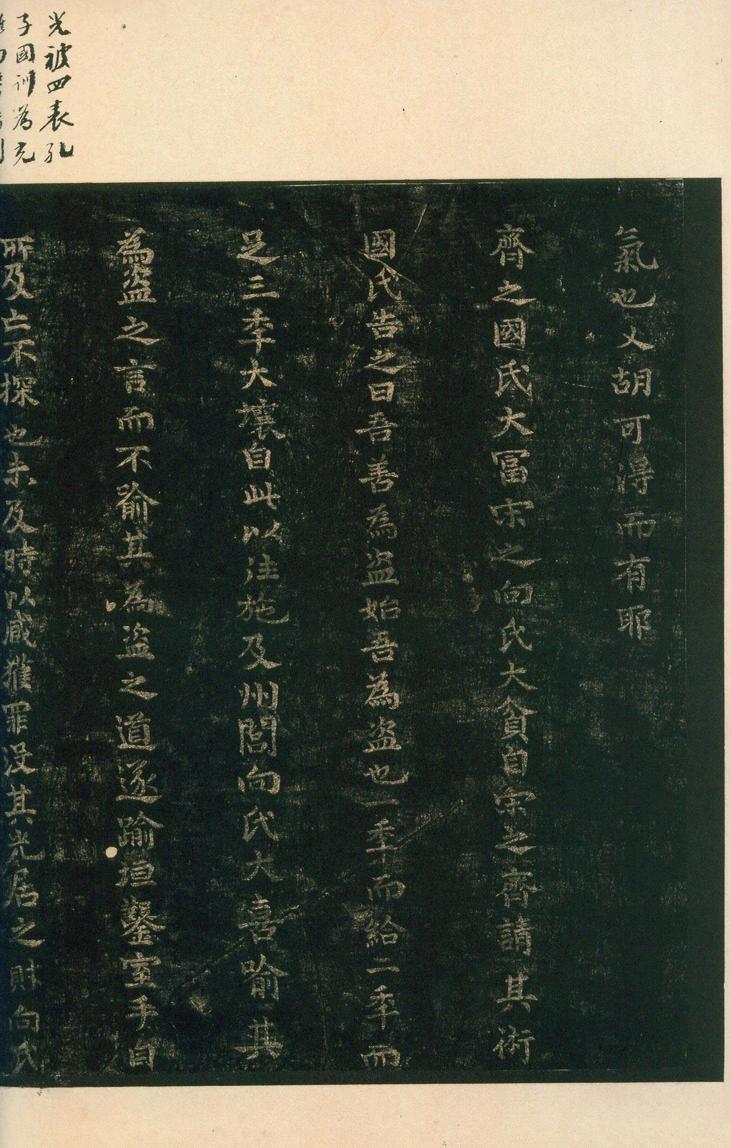 光被四表孔
子國訓為充
氣也又胡可淂而有耶
齊之國氏大冨宋之向氏大貧自宋之齊請其術
國氏告之曰吾善為盜始吾為盜也一季而給二季而
足三季大壤自此以往施及州閭向氏大喜喻其
為盜之言而不喻其為盜之道遂踰垣鑿室手目
所及亡不探也未及時以臧獲罪没其先居之財向氏